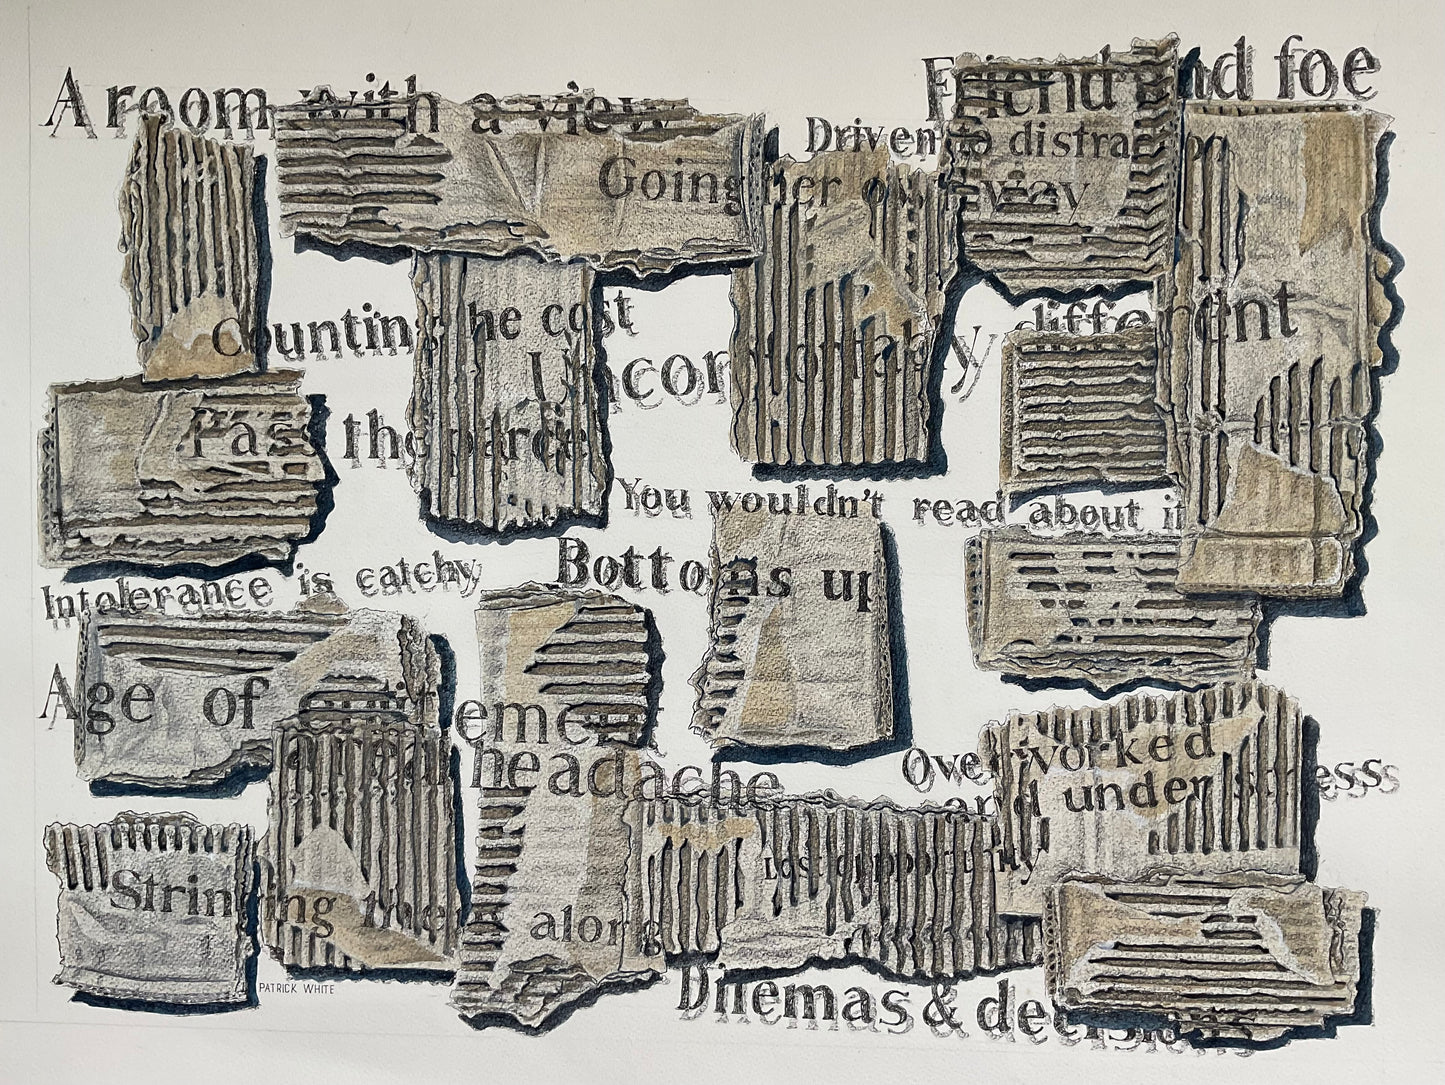 A room with a view
Friend and foe
Driven to distraction
Going her own way
Counting the cost
Uncomfortably different
Pass the parcel
You wouldn't read about it
Bottoms up
Intolerance is catchy
Age of entitlement
a real headache
Over worked
and under stress
Lost opportunity
Stringing them along
PATRICK WHITE
Dilemas & decisions